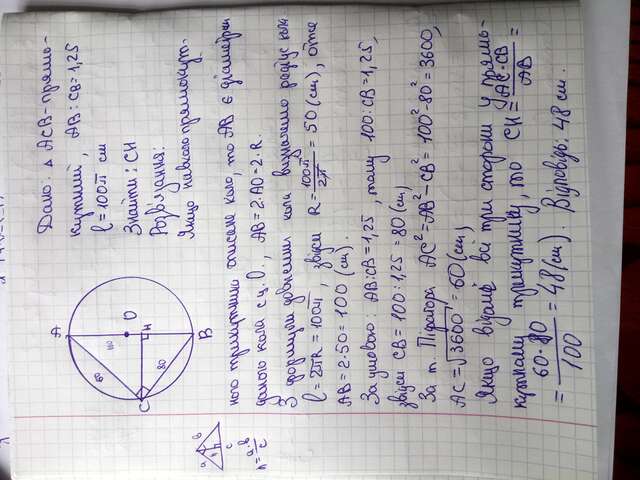 Дано: △ ACB - прямо-
кутний, AB:CB=1,25
l=100π см
Знайти: CH
Розв'язання:
Якщо навколо прямокут-
ного трикутника описане коло, то AB є діаметром
даного кола з ц. O., AB=2·AO=2·R.
З формули довжини кола визначимо радіус кола
l=2πR=100π, звідси R=100π/2π=50(см), отже
AB=2·50=100 (см).
За умовою: AB:CB=1,25, тому 100:CB=1,25,
звідси CB=100:1,25=80(см)
За т. Піфагора AC²=AB²-CB²=100²-80²=3600,
AC=√3600=60(см)
Якщо відомі всі три сторони у прямо-
кутному трикутнику, то CH=AC·CB/AB=
=60·80/100=48(см). Відповідь: 48 см.
A
O
H
B
C
60
80
a
b
h
c
h=a·b/c